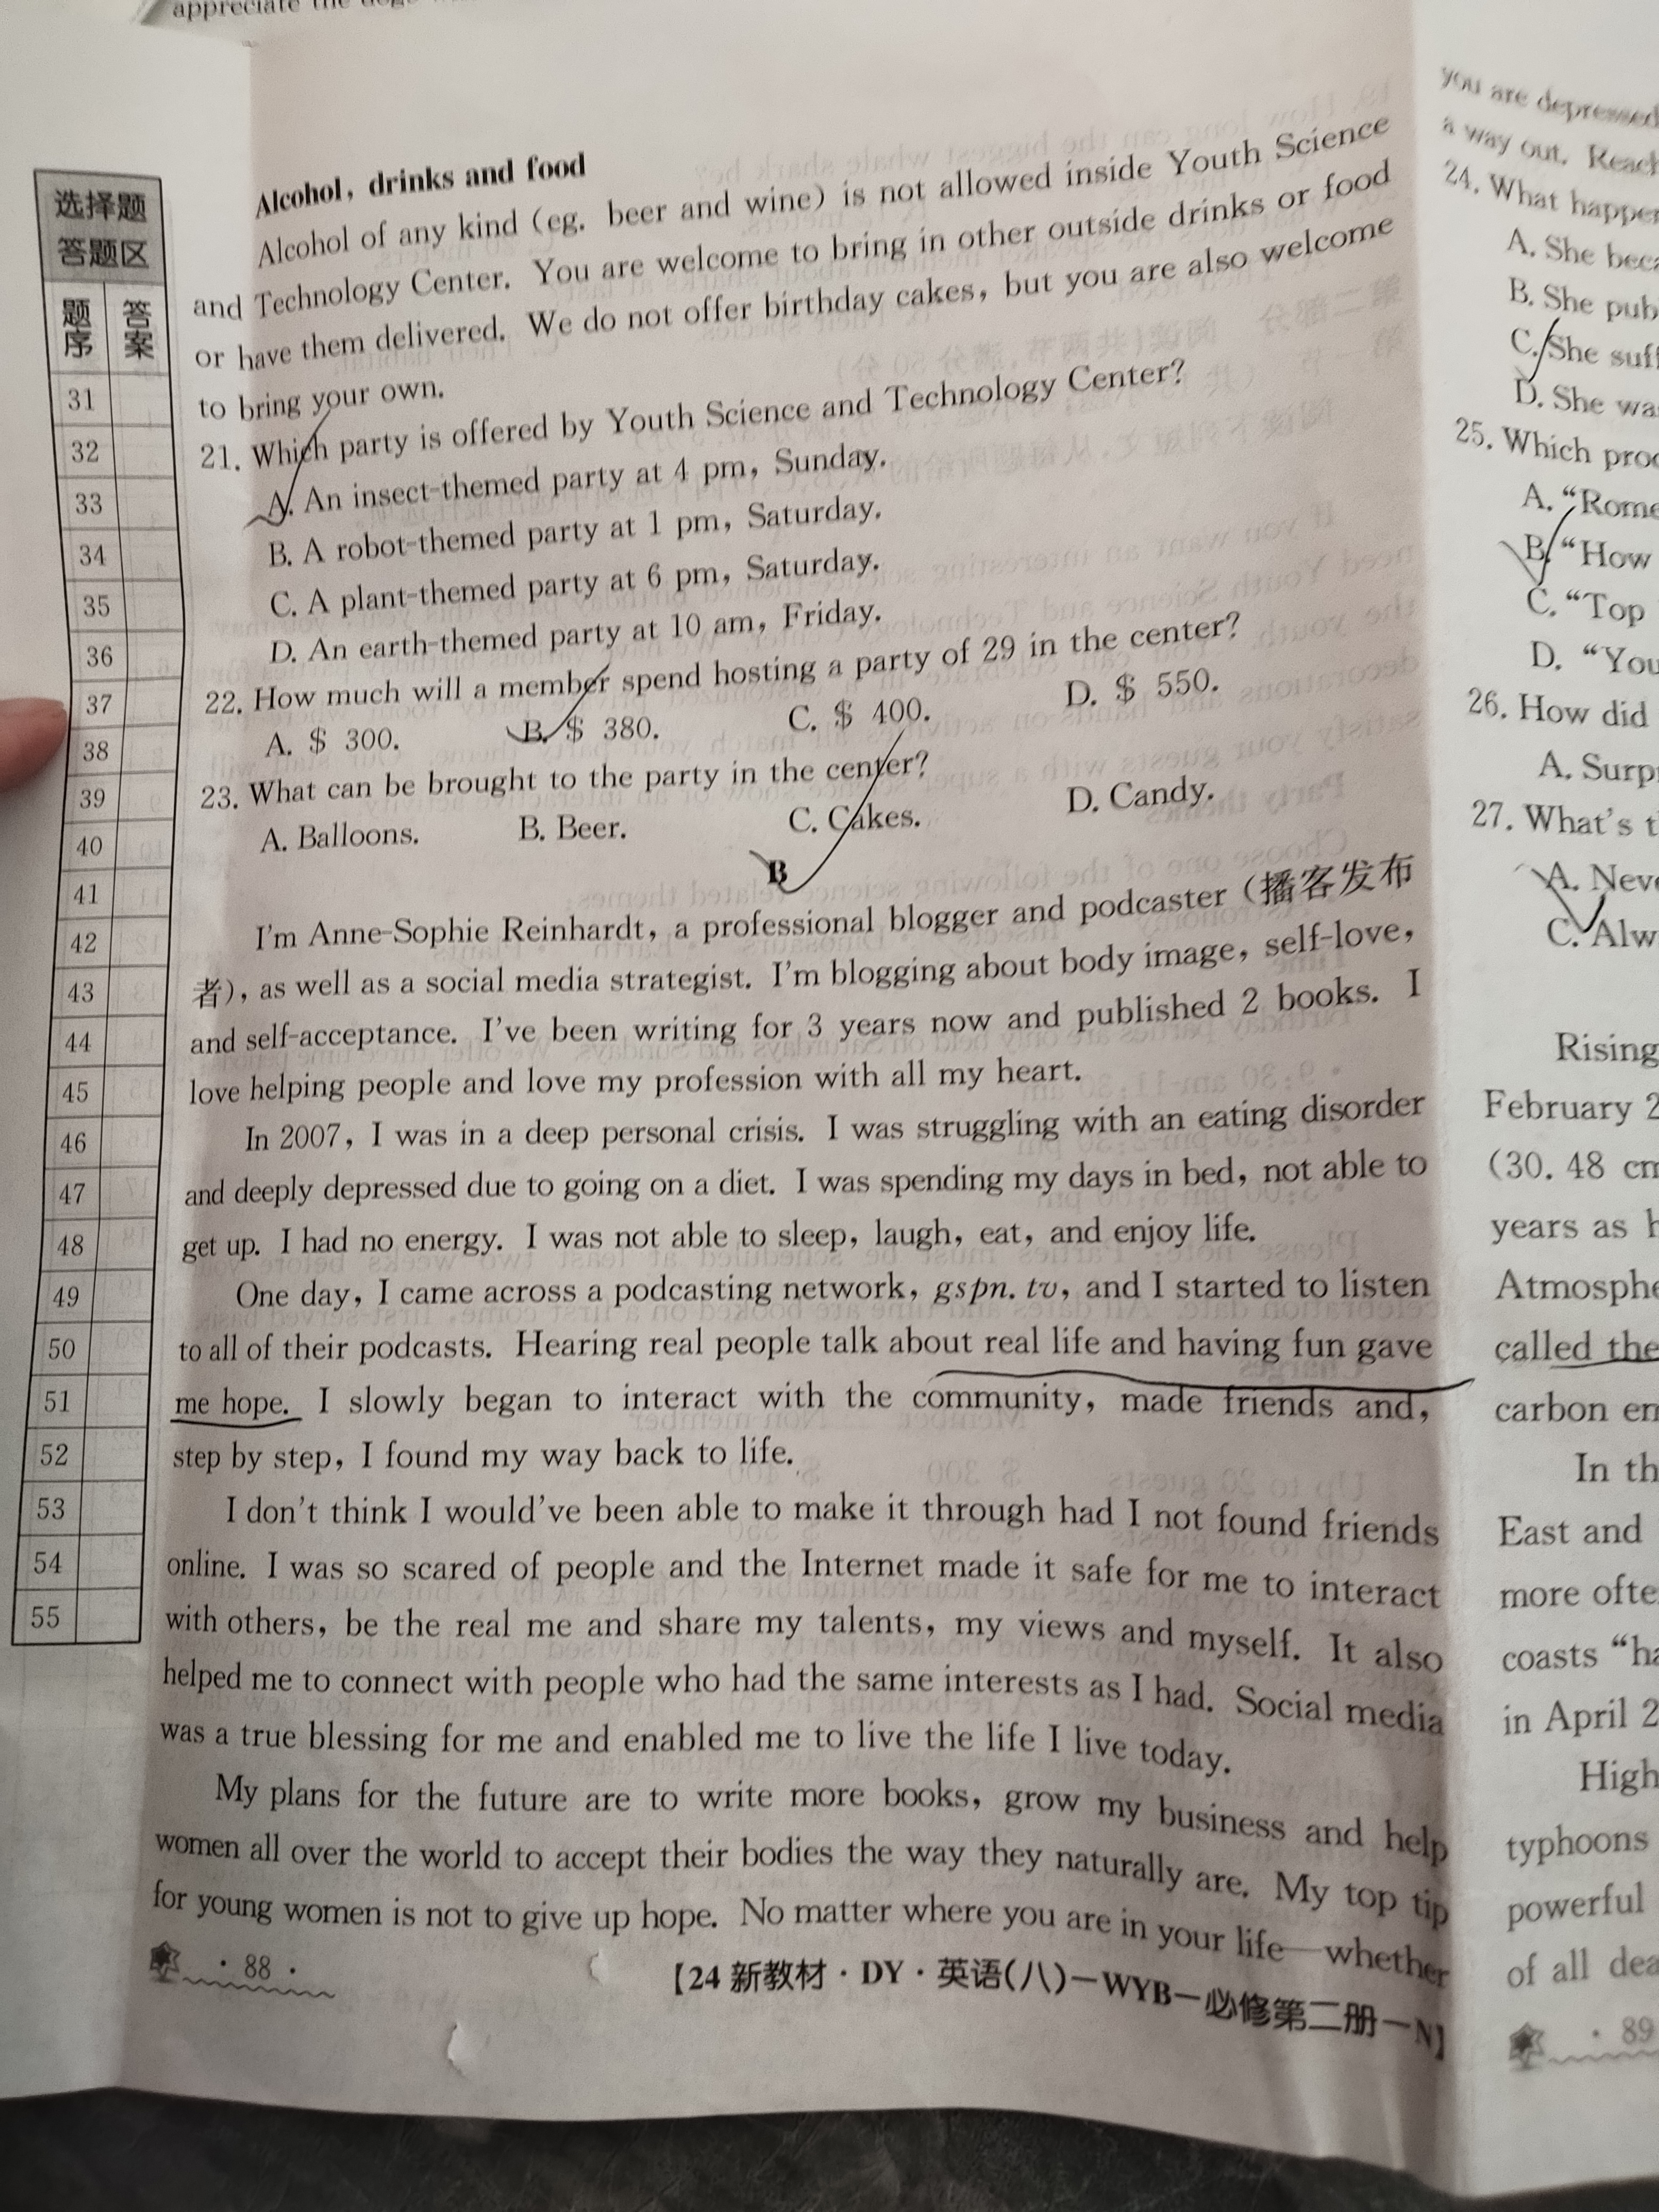 appreciate the
选择题
答题区
题序 答案
31
32
33
34
35
36
37
38
39
40
41
42
43
44
45
46
47
48
49
50
51
52
53
54
55
Alcohol, drinks and food
Alcohol of any kind (eg. beer and wine) is not allowed inside Youth Science
and Technology Center. You are welcome to bring in other outside drinks or food
or have them delivered. We do not offer birthday cakes, but you are also welcome
to bring your own.
21. Which party is offered by Youth Science and Technology Center?
A. An insect-themed party at 4 pm, Sunday.
B. A robot-themed party at 1 pm, Saturday.
C. A plant-themed party at 6 pm, Saturday.
D. An earth-themed party at 10 am, Friday.
22. How much will a member spend hosting a party of 29 in the center?
A. $ 300. B. $ 380. C. $ 400. D. $ 550.
23. What can be brought to the party in the center?
A. Balloons. B. Beer. C. Cakes. D. Candy.
B
I'm Anne-Sophie Reinhardt, a professional blogger and podcaster (播客发布
者), as well as a social media strategist. I'm blogging about body image, self-love,
and self-acceptance. I've been writing for 3 years now and published 2 books. I
love helping people and love my profession with all my heart.
In 2007, I was in a deep personal crisis. I was struggling with an eating disorder
and deeply depressed due to going on a diet. I was spending my days in bed, not able to
get up. I had no energy. I was not able to sleep, laugh, eat, and enjoy life.
One day, I came across a podcasting network, gspn. tv, and I started to listen
to all of their podcasts. Hearing real people talk about real life and having fun gave
me hope. I slowly began to interact with the community, made friends and,
step by step, I found my way back to life.
I don't think I would've been able to make it through had I not found friends
online. I was so scared of people and the Internet made it safe for me to interact
with others, be the real me and share my talents, my views and myself. It also
helped me to connect with people who had the same interests as I had. Social media
was a true blessing for me and enabled me to live the life I live today.
My plans for the future are to write more books, grow my business and help
women all over the world to accept their bodies the way they naturally are. My top tip
for young women is not to give up hope. No matter where you are in your life—whether
· 88 ·
【24 新教材·DY·英语(八)-WYB-必修第二册-N】
you are depressed
a way out. Reach
24. What happe
A. She bec
B. She pub
C. She suf
D. She wa
25. Which pro
A. "Rome
B. "How
C. "Top
D. "You
26. How did
A. Surp
27. What's t
A. Neve
C. Alw
Rising
February 2
(30. 48 cm
years as h
Atmosphe
called the
carbon em
In th
East and
more ofte
coasts "ha
in April 2
High
typhoons
powerful
of all dea
· 89